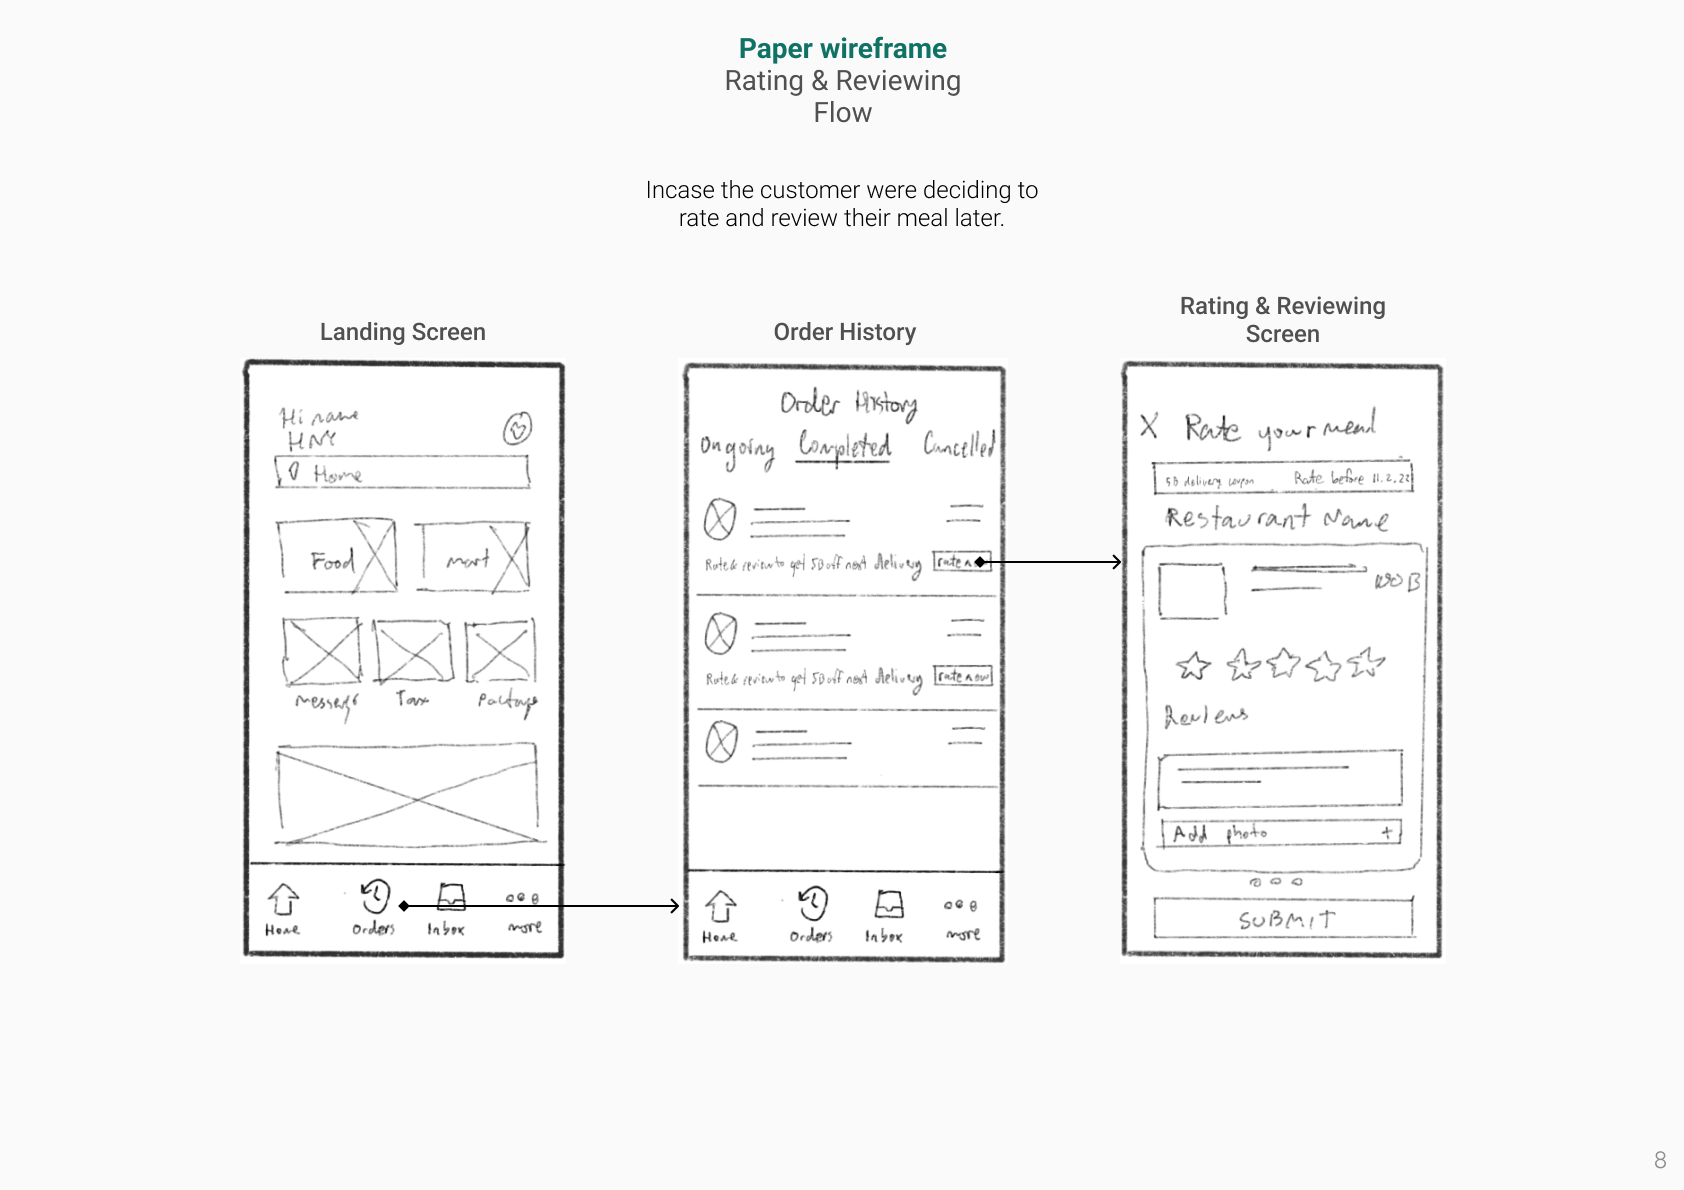 Paper wireframe
Rating & Reviewing
Flow
Incase the customer were deciding to
rate and review their meal later.
Landing Screen
Hi name
Home
Food
mart
Message
Taxi
Package
Home
Orders
Inbox
more
Order History
Order History
Ongoing Completed Cancelled
Rate & review to get 50 off next delivery
rate n
Rate & review to get 50 off next delivery
rate now
Home
Orders
Inbox
more
Rating & Reviewing
Screen
X Rate your meal
delivery coupon Rate before 11.2.22
Restaurant Name
Reviews
Add photo +
SUBMIT
8